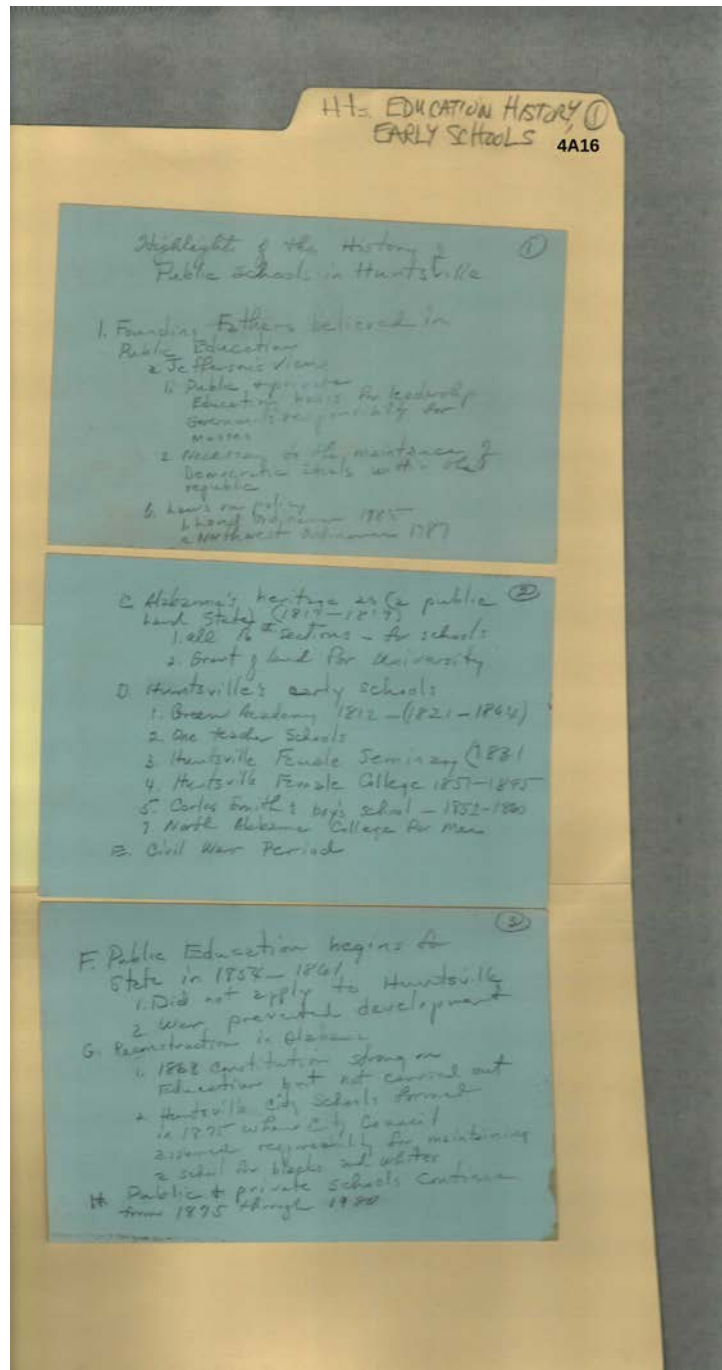 HH= EDUCATION HISTORY, ①
EARLY SCHOOLS 4A16
Highlight of the History of ①
Public Schools in Huntsville
1. Founding Fathers believed in
Public Education
a. Jefferson's View
1. Public & private
Education basis for leadership
Government responsibility for
masses
2. Necessary to the maintenance of
Democratic ideals within the
republic
b. Laws on policy
1. Land Ordinance 1785
2. Northwest Ordinance 1787
C. Alabama's heritage as (a public ②
land State) (1817-1819)
1. all 16th Sections - for schools
2. Grant of land for University
D. Huntsville's early schools
1. Green Academy 1812 - (1821-1864)
2. One teacher Schools
3. Huntsville Female Seminary (1831
4. Huntsville Female College 1851-1895
5. Carlos Smith's boy's school - 1852-1860
7. North Alabama College for Men
E. Civil War Period
③
F. Public Education begins for
State in 1854-1861
1. Did not apply to Huntsville
2. War prevented development
G. Reconstruction in Alabama
1. 1868 Constitution strong on
Education but not carried out
2. Huntsville City Schools formed
in 1875 when City Council
assumed responsibility for maintaining
a school for blacks and whites
H. Public & private schools continue
from 1875 through 1980